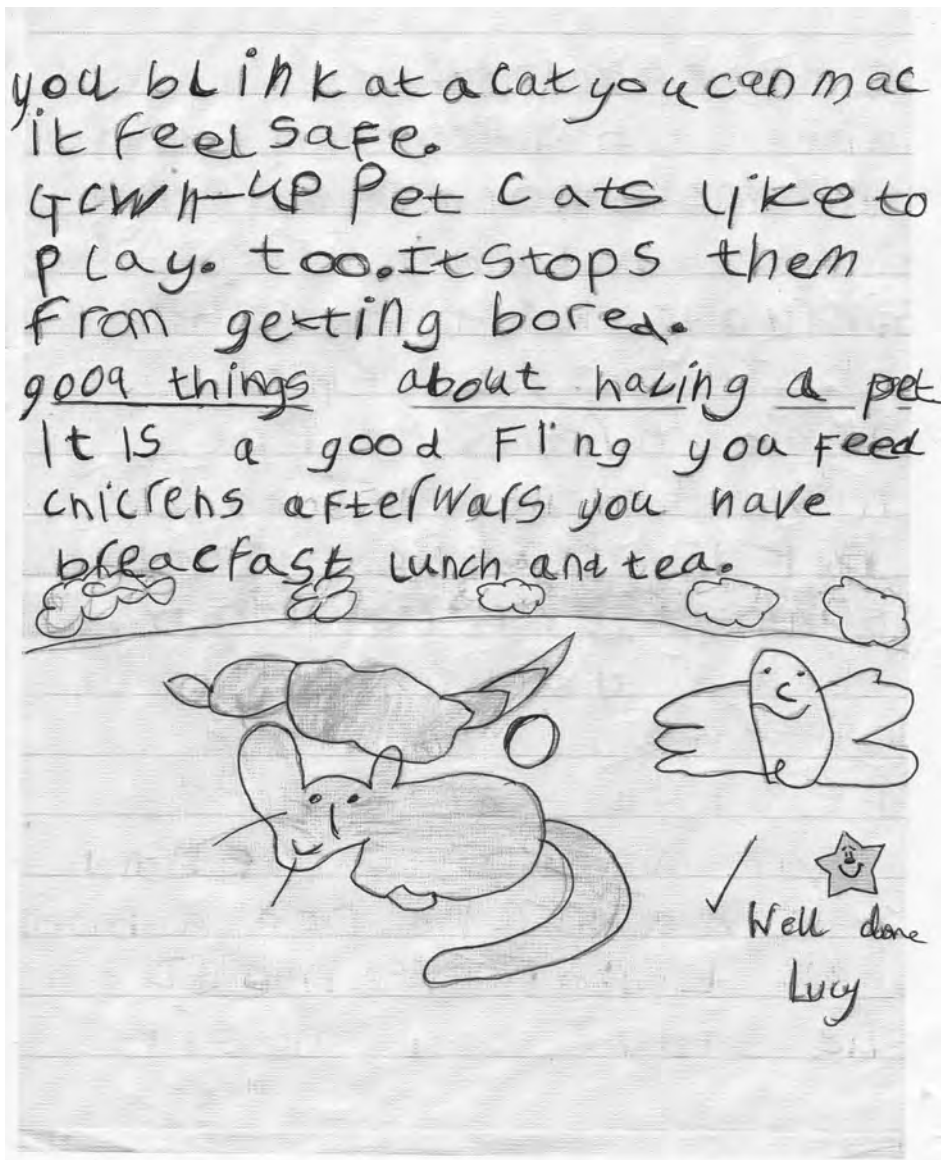 you blink at a cat you can mac
it feel safe.
Gcwn-up Pet cats like to
play. too. It stops them
from getting bored.
good things about having a pet
It is a good fing you feed
chicrens afterwars you have
breacfast lunch and tea.
Well done
Lucy